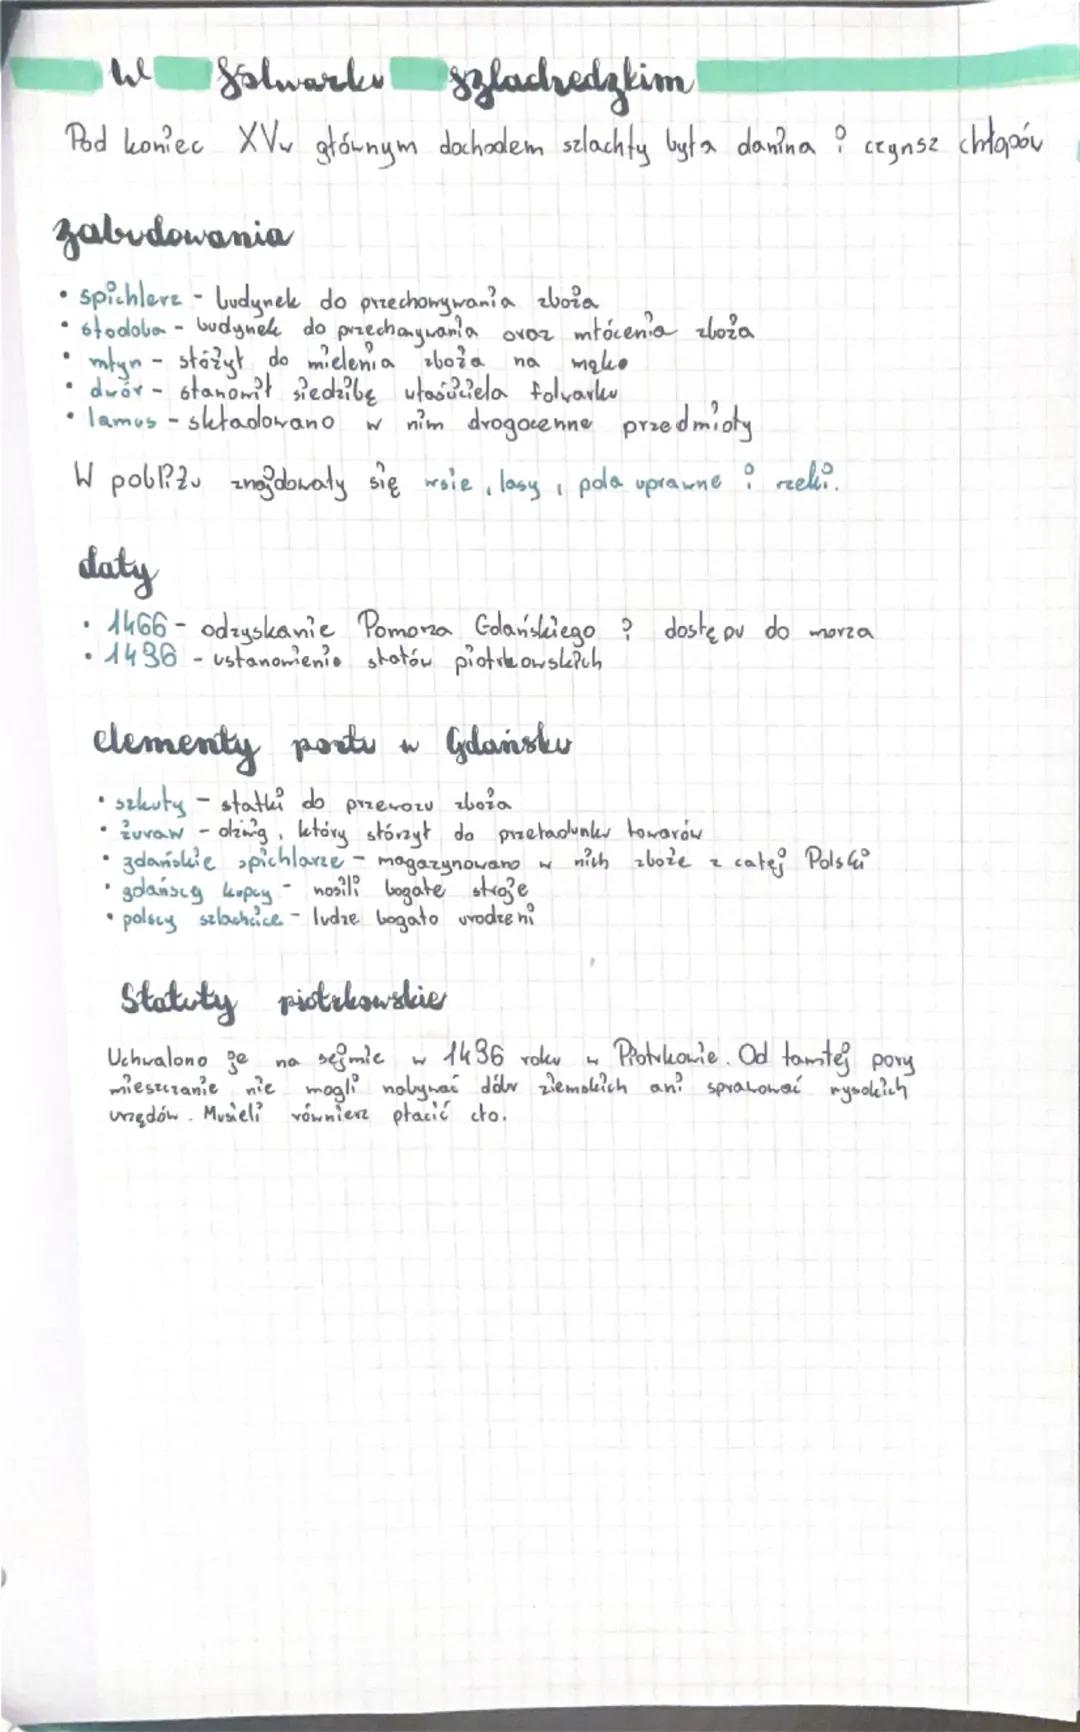 W folwarku szlachedzkim
Pod koniec XVw głównym dochodem szlachty była danina i czynsz chłopów
zabudowania
• spichlerz - budynek do przechowywania zboża
• stodoła - budynek do przechowywania oraz młócenia zboża
• młyn - stóżył do mielenia zboża na mąke
• dwór - stanowił siedzibę właściciela folwarku
• lamus - składowano w nim drogocenne przedmioty
W pobliżu znajdowały się wsie, lasy, pola uprawne i rzeki.
daty
• 1466 - odzyskanie Pomorza Gdańskiego i dostępu do morza
• 1496 - ustanowienie statów piotrkowskich
elementy portu w Gdańsku
• szkuty - statki do przewozu zboża
• żuraw - dźwig, który stórzył do przeładunku towarów
• gdańskie spichlarze - magazynowano w nich zboże z całej Polski
• gdańscy kupcy - nosili bogate stroje
• polscy szlachcice - ludze bogato urodzeni
Statuty piotrkowskie
Uchwalono je na sejmie w 1496 roku w Piotrkowie. Od tamtej pory
mieszczanie nie mogli nabywać dóbr ziemskich ani sprawować wysokich
urzędów. Musieli równierz płacić cło.